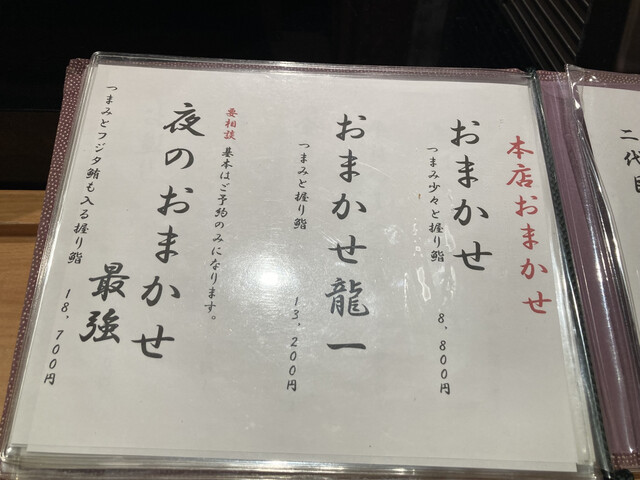 本店おまかせ
おまかせ
つまみ少々と握り鮨 8,800円
おまかせ龍一
つまみと握り鮨 13,200円
要相談 基本はご予約のみになります。
夜のおまかせ
最強
つまみとフジタ鮪も入る握り鮨 18,700円
二代目